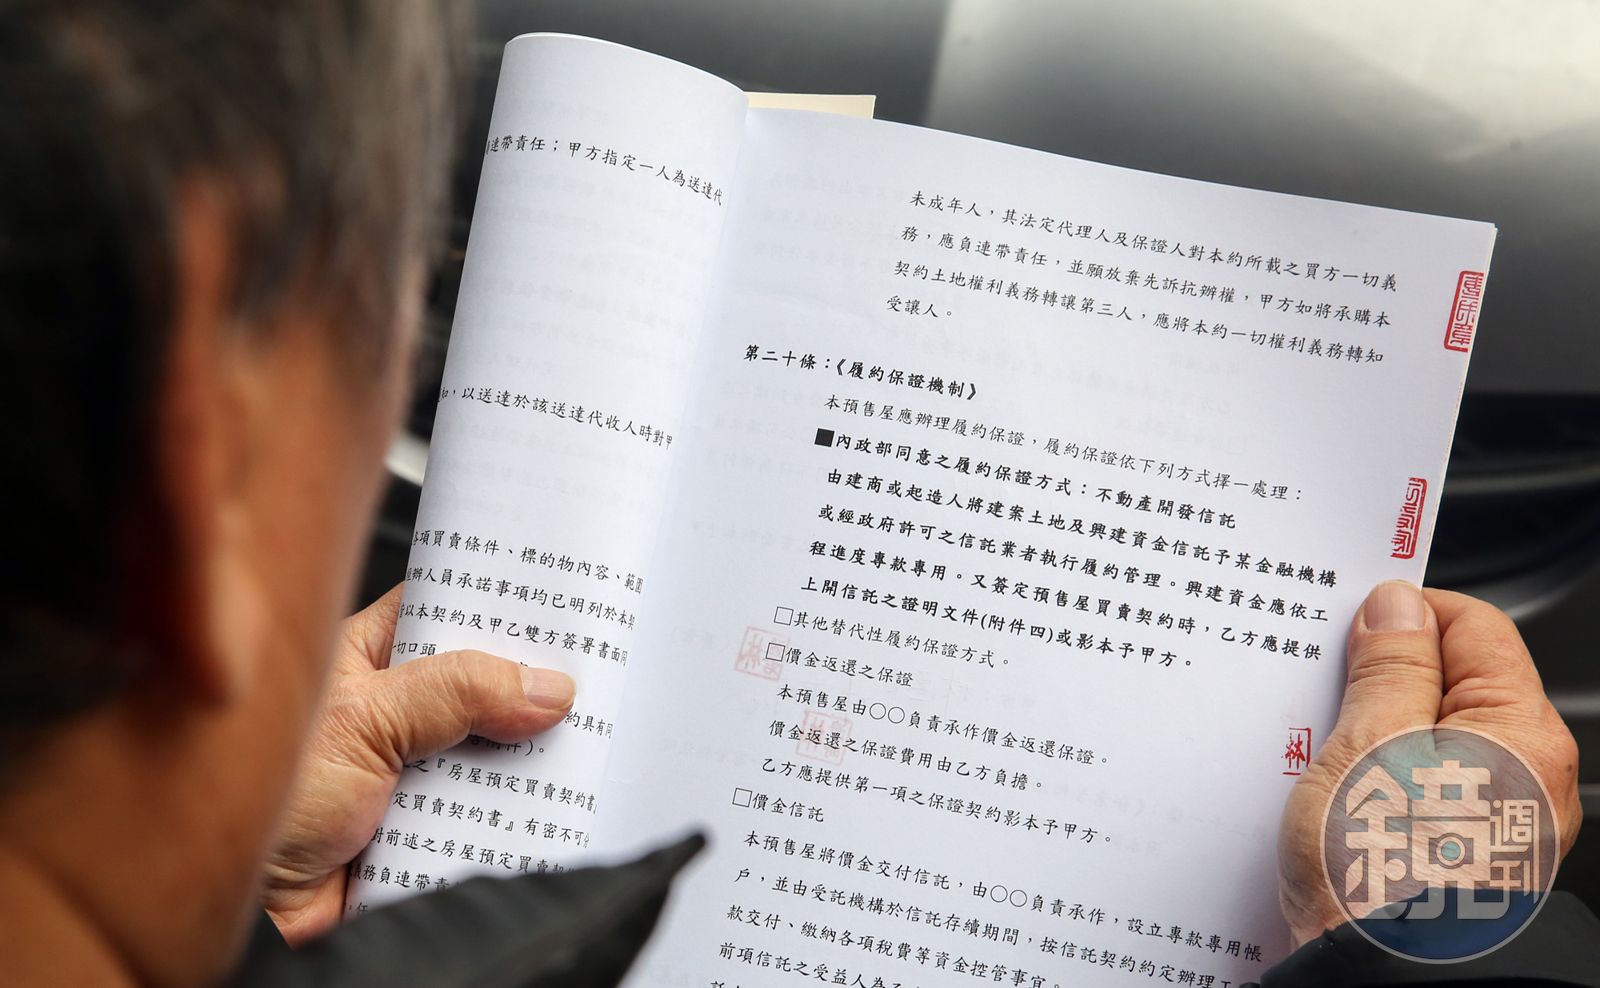 連帶責任；甲方指定一人為送達代
，以送達於該送達代收人時對甲
各項買賣條件、標的物內容、範圍
辦人員承諾事項均已明列於本契
以本契約及甲乙雙方簽署書面同
切口頭
約具有同
件)。
之『房屋預定買賣契約書
定買賣契約書』有密不可分
對前述之房屋預定買賣契
義務負連帶責
未成年人，其法定代理人及保證人對本約所載之買方一切義
務，應負連帶責任，並願放棄先訴抗辯權，甲方如將承購本
契約土地權利義務轉讓第三人，應將本約一切權利義務轉知
受讓人。
第二十條：《履約保證機制》
本預售屋應辦理履約保證，履約保證依下列方式擇一處理：
■內政部同意之履約保證方式：不動產開發信託
由建商或起造人將建案土地及興建資金信託予某金融機構
或經政府許可之信託業者執行履約管理。興建資金應依工
程進度專款專用。又簽定預售屋買賣契約時，乙方應提供
上開信託之證明文件(附件四)或影本予甲方。
□其他替代性履約保證方式。
□價金返還之保證
本預售屋由○○負責承作價金返還保證。
價金返還之保證費用由乙方負擔。
乙方應提供第一項之保證契約影本予甲方。
□價金信託
本預售屋將價金交付信託，由○○負責承作，設立專款專用帳
戶，並由受託機構於信託存續期間，按信託契約約定辦理工
款交付、繳納各項稅費等資金控管事宜。
前項信託之受益人為乙
林
鏡週刊